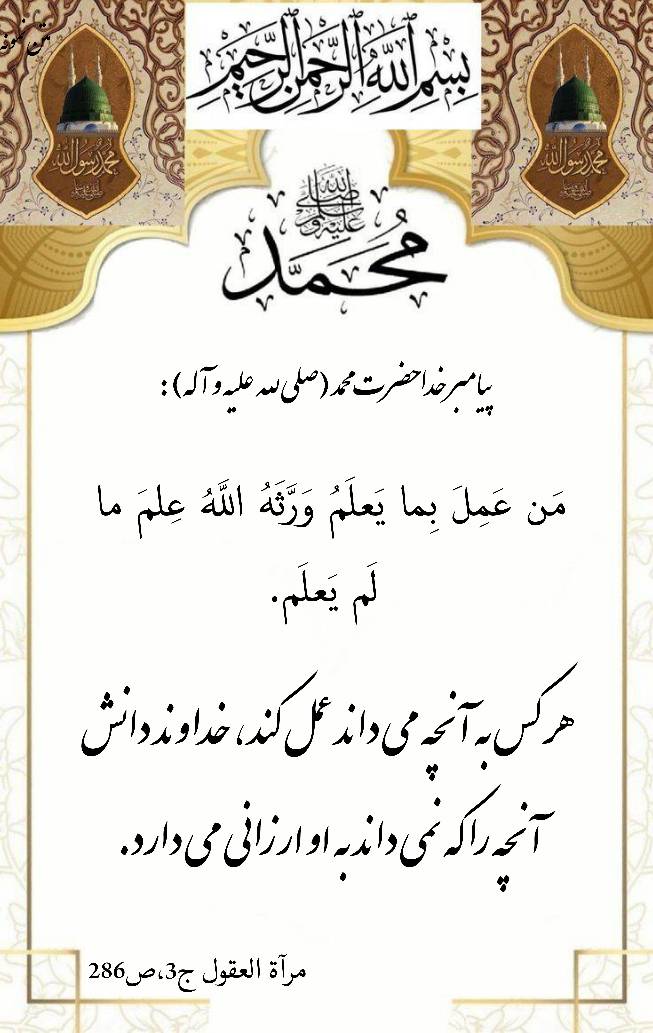 بِسْمِ اللهِ الرَّحْمٰنِ الرَّحِيمِ
محمد رسول الله
محمد رسول الله
صلى الله عليه وسلم
مُحَمَّد
پیامبر خدا حضرت محمد (صلی لله علیه و آله) :
مَن عَمِلَ بِما يَعلَمُ وَرَّثَهُ اللَّهُ عِلمَ ما
لَم يَعلَم.
هر کس به آنچه می داند عمل کند، خداوند دانش
آنچه را که نمی داند به او ارزانی می دارد.
مرآة العقول ج3،ص286